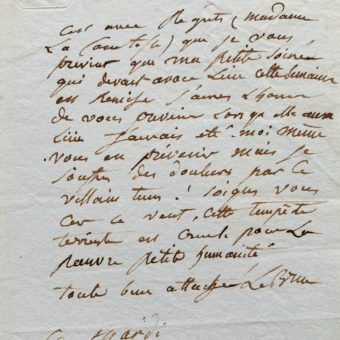 C'est avec Regrets (madame
La Comtesse) que je vous
previent que ma petite soirée
qui devait avoir Lieu cette Semaine
est Remise j'aurès L'honeur
de vous ouvrir Lorsqu'elle aura
Lieu j'aurais été moi même
vous en prévenir mais je
souffre des douleurs par ce
villain tems! soignes vous
Car ce vent, cette tempête
terrible est Cruel pour La
pauvre petite humanité
toute bien attachée LeBrun
Ce Mardi